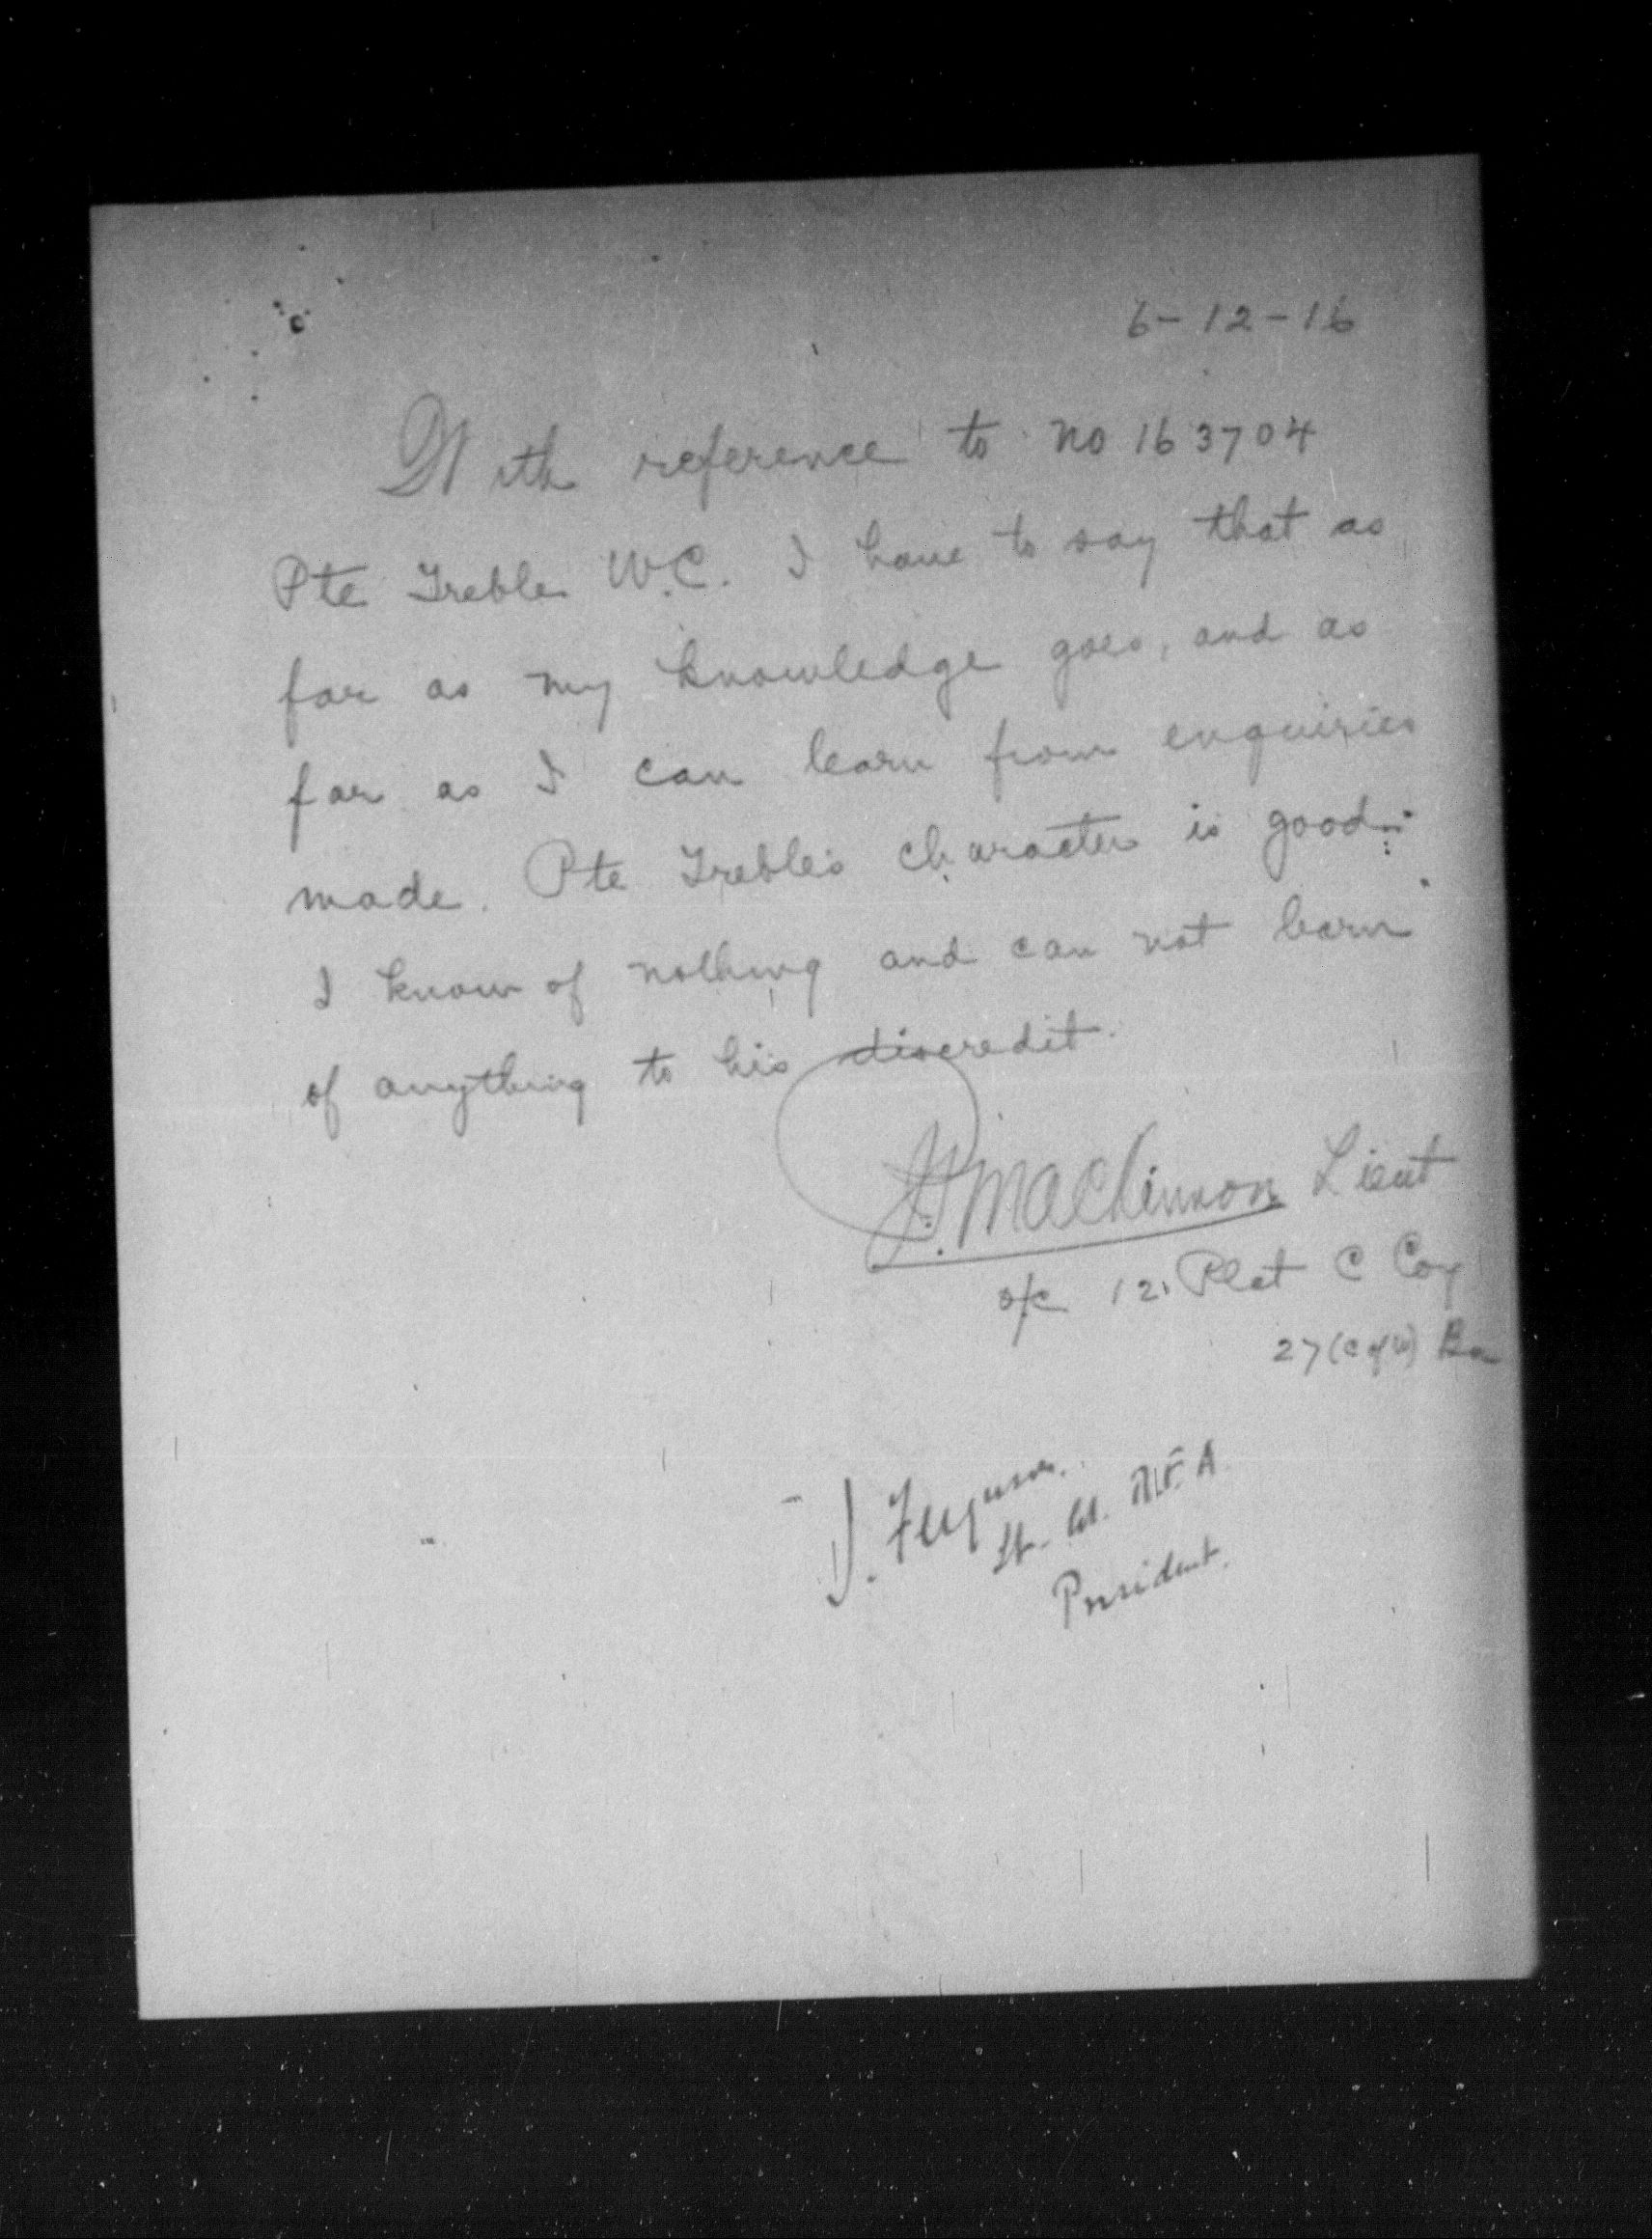 6-12-16
With reference to No 163704
Pte Treble W.C. I have to say that as
far as my knowledge goes, and as
far as I can learn from enquiries
made. Pte Treble's character is good.
I know of nothing and can not learn
of anything to his discredit.
MacKinnon Lieut
o/c 12. Plat C Coy
27 (C of W) Bn
J. Ferguson.
Lt. Col. R.F.A
President.